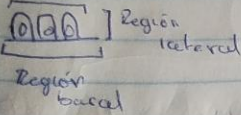 Región
lateral
Región
basal